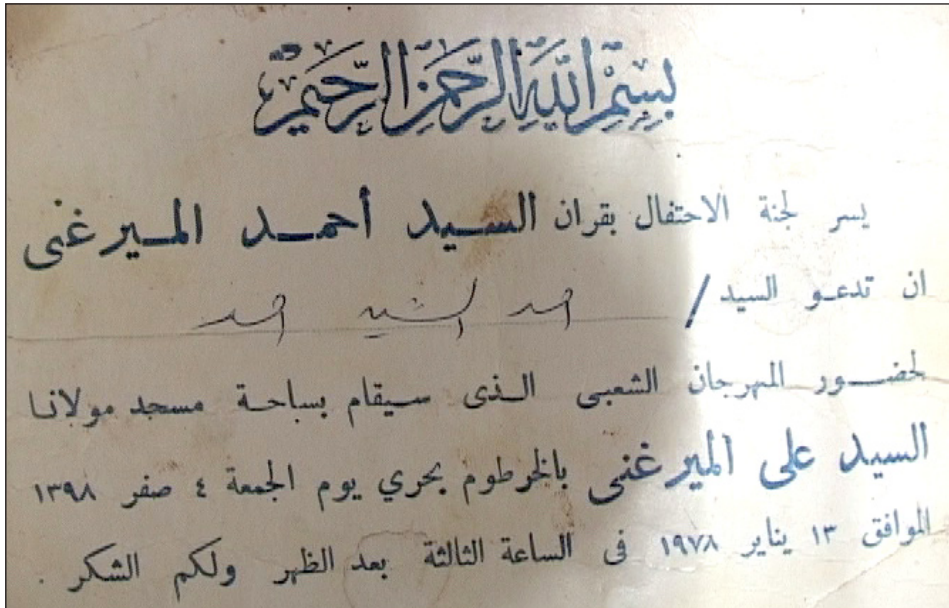 بسم الله الرحمن الرحيم
يسر لجنة الاحتفال بقران السيد أحمد الميرغنى
ان تدعو السيد / احمد السيد احمد
لحضور المهرجان الشعبى الذى سيقام بساحة مسجد مولانا
السيد على الميرغنى بالخرطوم بحري يوم الجمعة ٤ صفر ١٣٩٨
الموافق ١٣ يناير ١٩٧٨ فى الساعة الثالثة بعد الظهر ولكم الشكر .